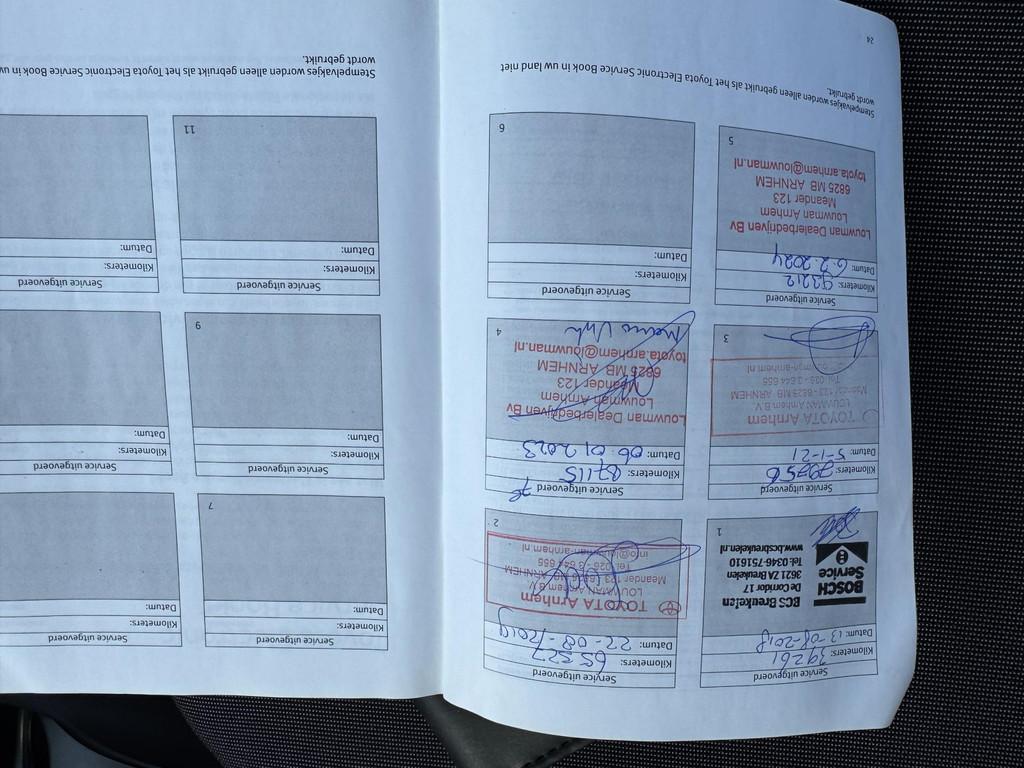 Service uitgevoerd
Kilometers: 39261
Datum: 13-08-2018
BCS Breukelen
De Corridor 17
3621 ZA Breukelen
Tel: 0346-751610
www.bcsbreukelen.nl
BOSCH
Service
1
Service uitgevoerd
Kilometers: 65527
Datum: 22-08-2019
TOYOTA Arnhem
LOUWMAN Arnhem B.V.
Meander 123 / 6825 MB ARNHEM
Tel. 026 - 3 644 655
info@louwman-arnhem.nl
2
Service uitgevoerd
Kilometers: 79756
Datum: 5-1-21
TOYOTA Arnhem
LOUWMAN Arnhem B.V.
Meander 123 / 6825 MB ARNHEM
Tel. 026 - 3 644 655
3
Service uitgevoerd
Kilometers: 87115
Datum: 06.01.2023
Louwman Dealerbedrijven Bv
Louwman Arnhem
Meander 123
6825 MB ARNHEM
toyota.arnhem@louwman.nl
4
Service uitgevoerd
Kilometers: 93212
Datum: 6.2.2024
Louwman Dealerbedrijven Bv
Louwman Arnhem
Meander 123
6825 MB ARNHEM
toyota.arnhem@louwman.nl
5
Service uitgevoerd
Kilometers:
Datum:
6
Stempelvakjes worden alleen gebruikt als het Toyota Electronic Service Book in uw land niet
wordt gebruikt.
24
Service uitgevoerd
Kilometers:
Datum:
7
Service uitgevoerd
Kilometers:
Datum:
Service uitgevoerd
Kilometers:
Datum:
9
Service uitgevoerd
Kilometers:
Datum:
Service uitgevoerd
Kilometers:
Datum:
11
Service uitgevoerd
Kilometers:
Datum:
Stempelvakjes worden alleen gebruikt als het Toyota Electronic Service Book in uw
wordt gebruikt.